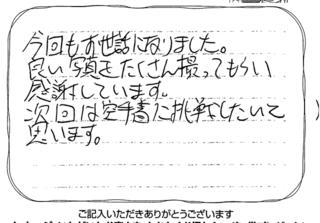 今回もお世話になりました。
良い写真をたくさん撮ってもらい
感謝しています。
次回は空手着に挑戦したいて
思います。
ご記入いただきありがとうございます